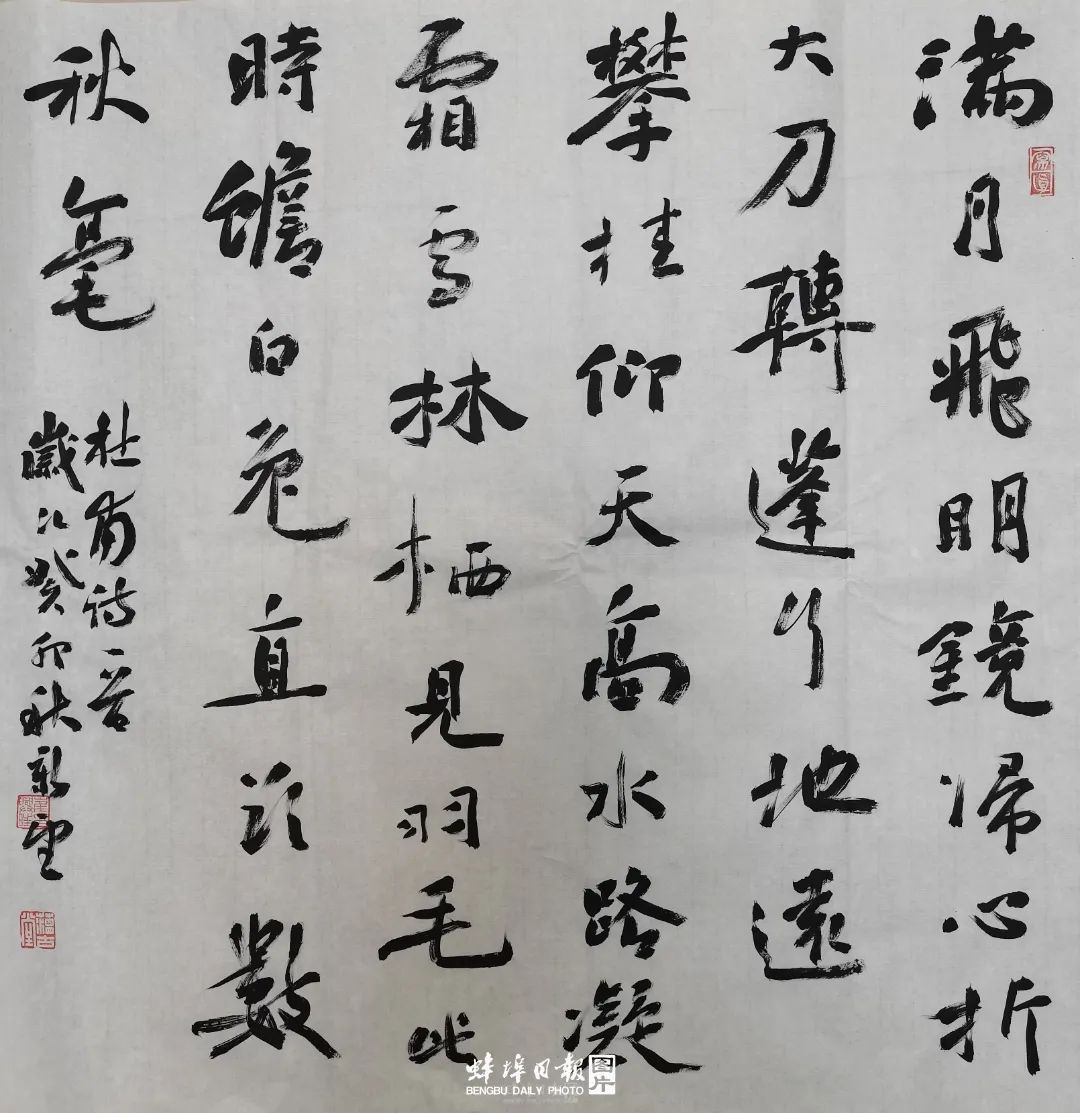 满月飛明鏡歸心折
大刀轉蓬行地遠
攀桂仰天高水路凝
霜雪林栖見羽毛此
時蟾白兔直欲數
秋毫
杜甫诗一首
歲次癸卯秋
蚌埠日報 图片
BENGBU DAILY PHOTO